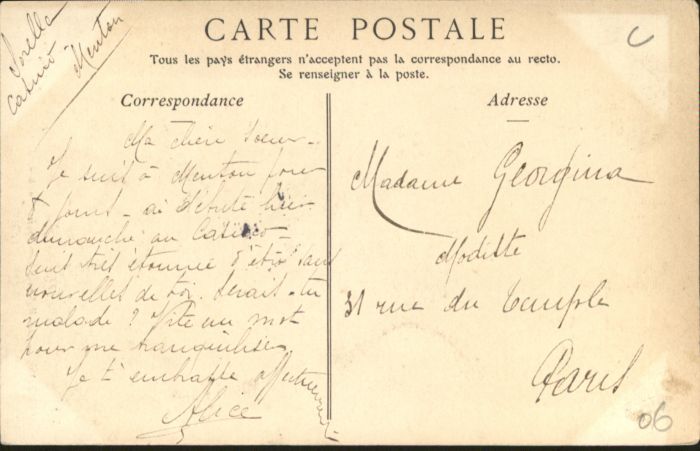 Sorella
Casino
Menton
C
CARTE POSTALE
Tous les pays étrangers n'acceptent pas la correspondance au recto.
Se renseigner à la poste.
Correspondance
Adresse
Ma chère Soeur -
Je suis à Menton pour
8 jours - ai débuté hier
dimanche au Casino -
Suis très étonnée d'être sans
nouvelles de toi. Serais-tu
malade ? Vite un mot
pour me tranquiliser
Je t'embrasse affectueus
Alice
Madame Georgina
Modiste
31 rue du Temple
Paris
06